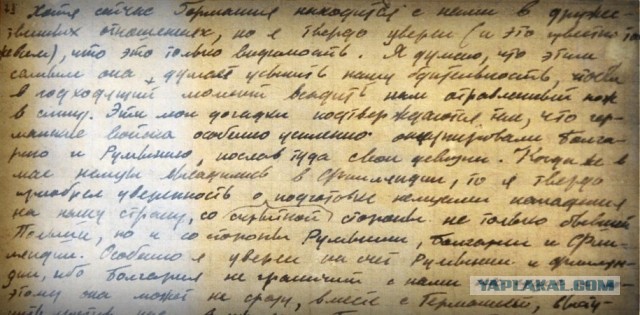 Хотя сейчас Германия находится с нами в друже-
ственных отношениях, но я твердо уверен (и это известно
всем), что это только видимость. Я думаю, что этим
самым она думает усыпить нашу бдительность, чтобы
в подходящий момент всадить нам отравленный нож
в спину. Эти мои догадки подтверждаются тем, что гер-
манские войска особенно усиленно оккупировали Болга-
рию и Румынию, послав туда свои дивизии. Когда же в
мае немцы высадились в Финляндии, то я твердо
приобрел уверенность о подготовке немцами нападения
на нашу страну, со стороны не только бывшей
Польши, но и со стороны Румынии, Болгарии и Фин-
ляндии. Особенно я уверен на счет Румынии и Финлян-
дии, ибо Болгария не граничит с нами
этому она может не сразу, вместе с Германией,
YAPLAKAL.COM